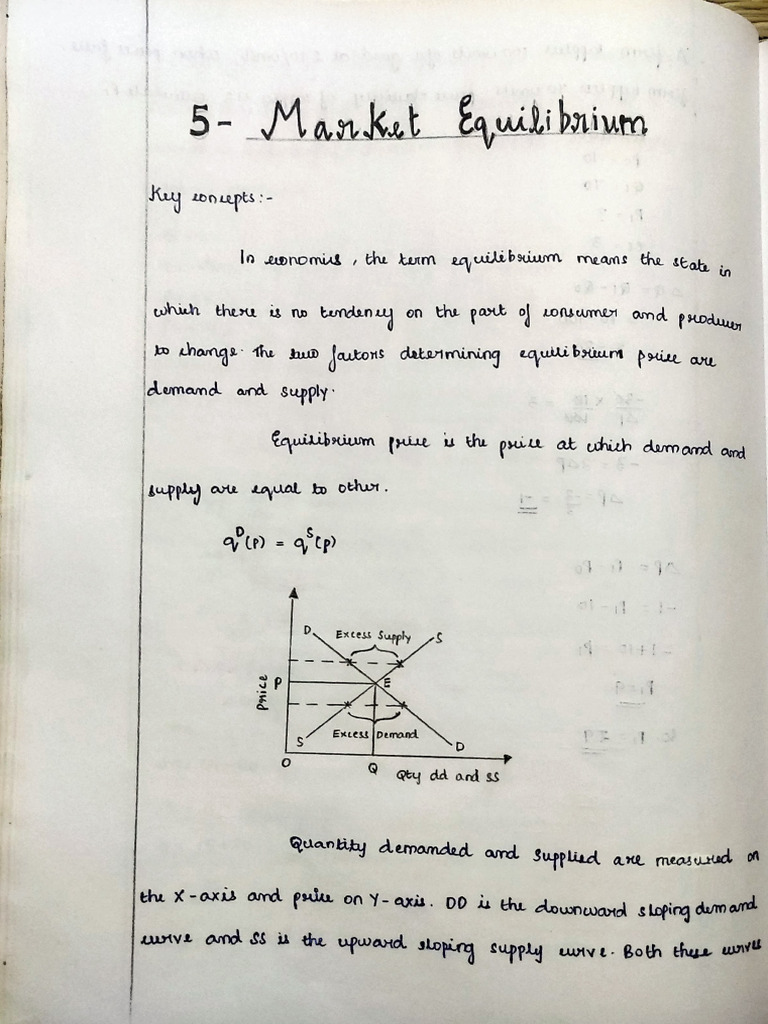 5- Market Equilibrium
Key concepts:-
In economics, the term equilibrium means the state in
which there is no tendency on the part of consumer and producer
to change. The two factors determining equilibrium price are
demand and supply.
Equilibrium price is the price at which demand and
supply are equal to other.
qᴰ(P) = qˢ(P)
D Excess Supply S
Price P E
S Excess Demand D
O Q Qty dd and ss
Quantity demanded and supplied are measured on
the X-axis and price on Y-axis. DD is the downward sloping demand
curve and SS is the upward sloping supply curve. Both these curves